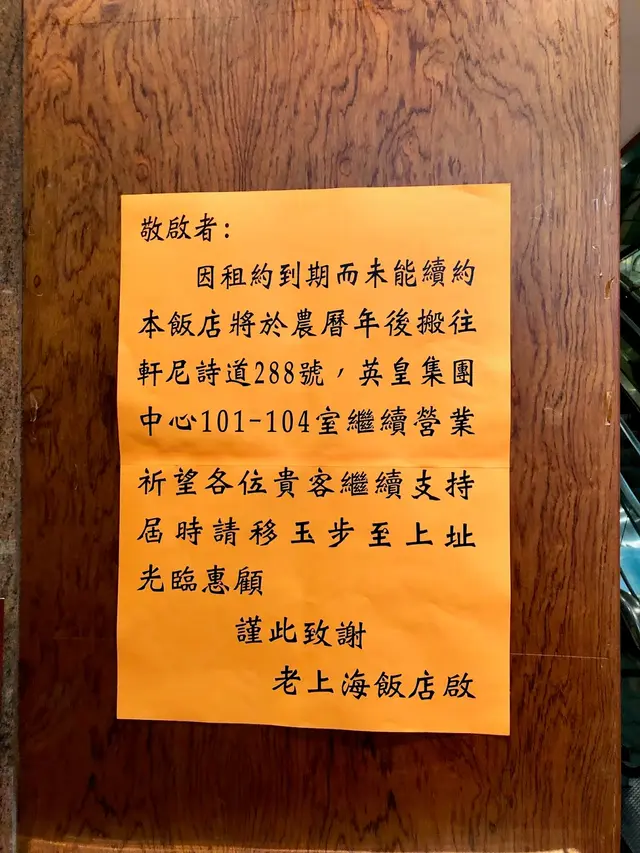 敬啟者:
因租約到期而未能續約
本飯店將於農曆年後搬往
軒尼詩道288號，英皇集團
中心101-104室繼續營業
祈望各位貴客繼續支持
屆時請移玉步至上址
光臨惠顧
謹此致謝
老上海飯店啟